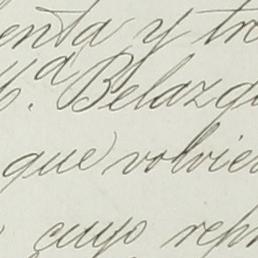 enta y tre
M.ª Belazq
que volvie
cuyo repr